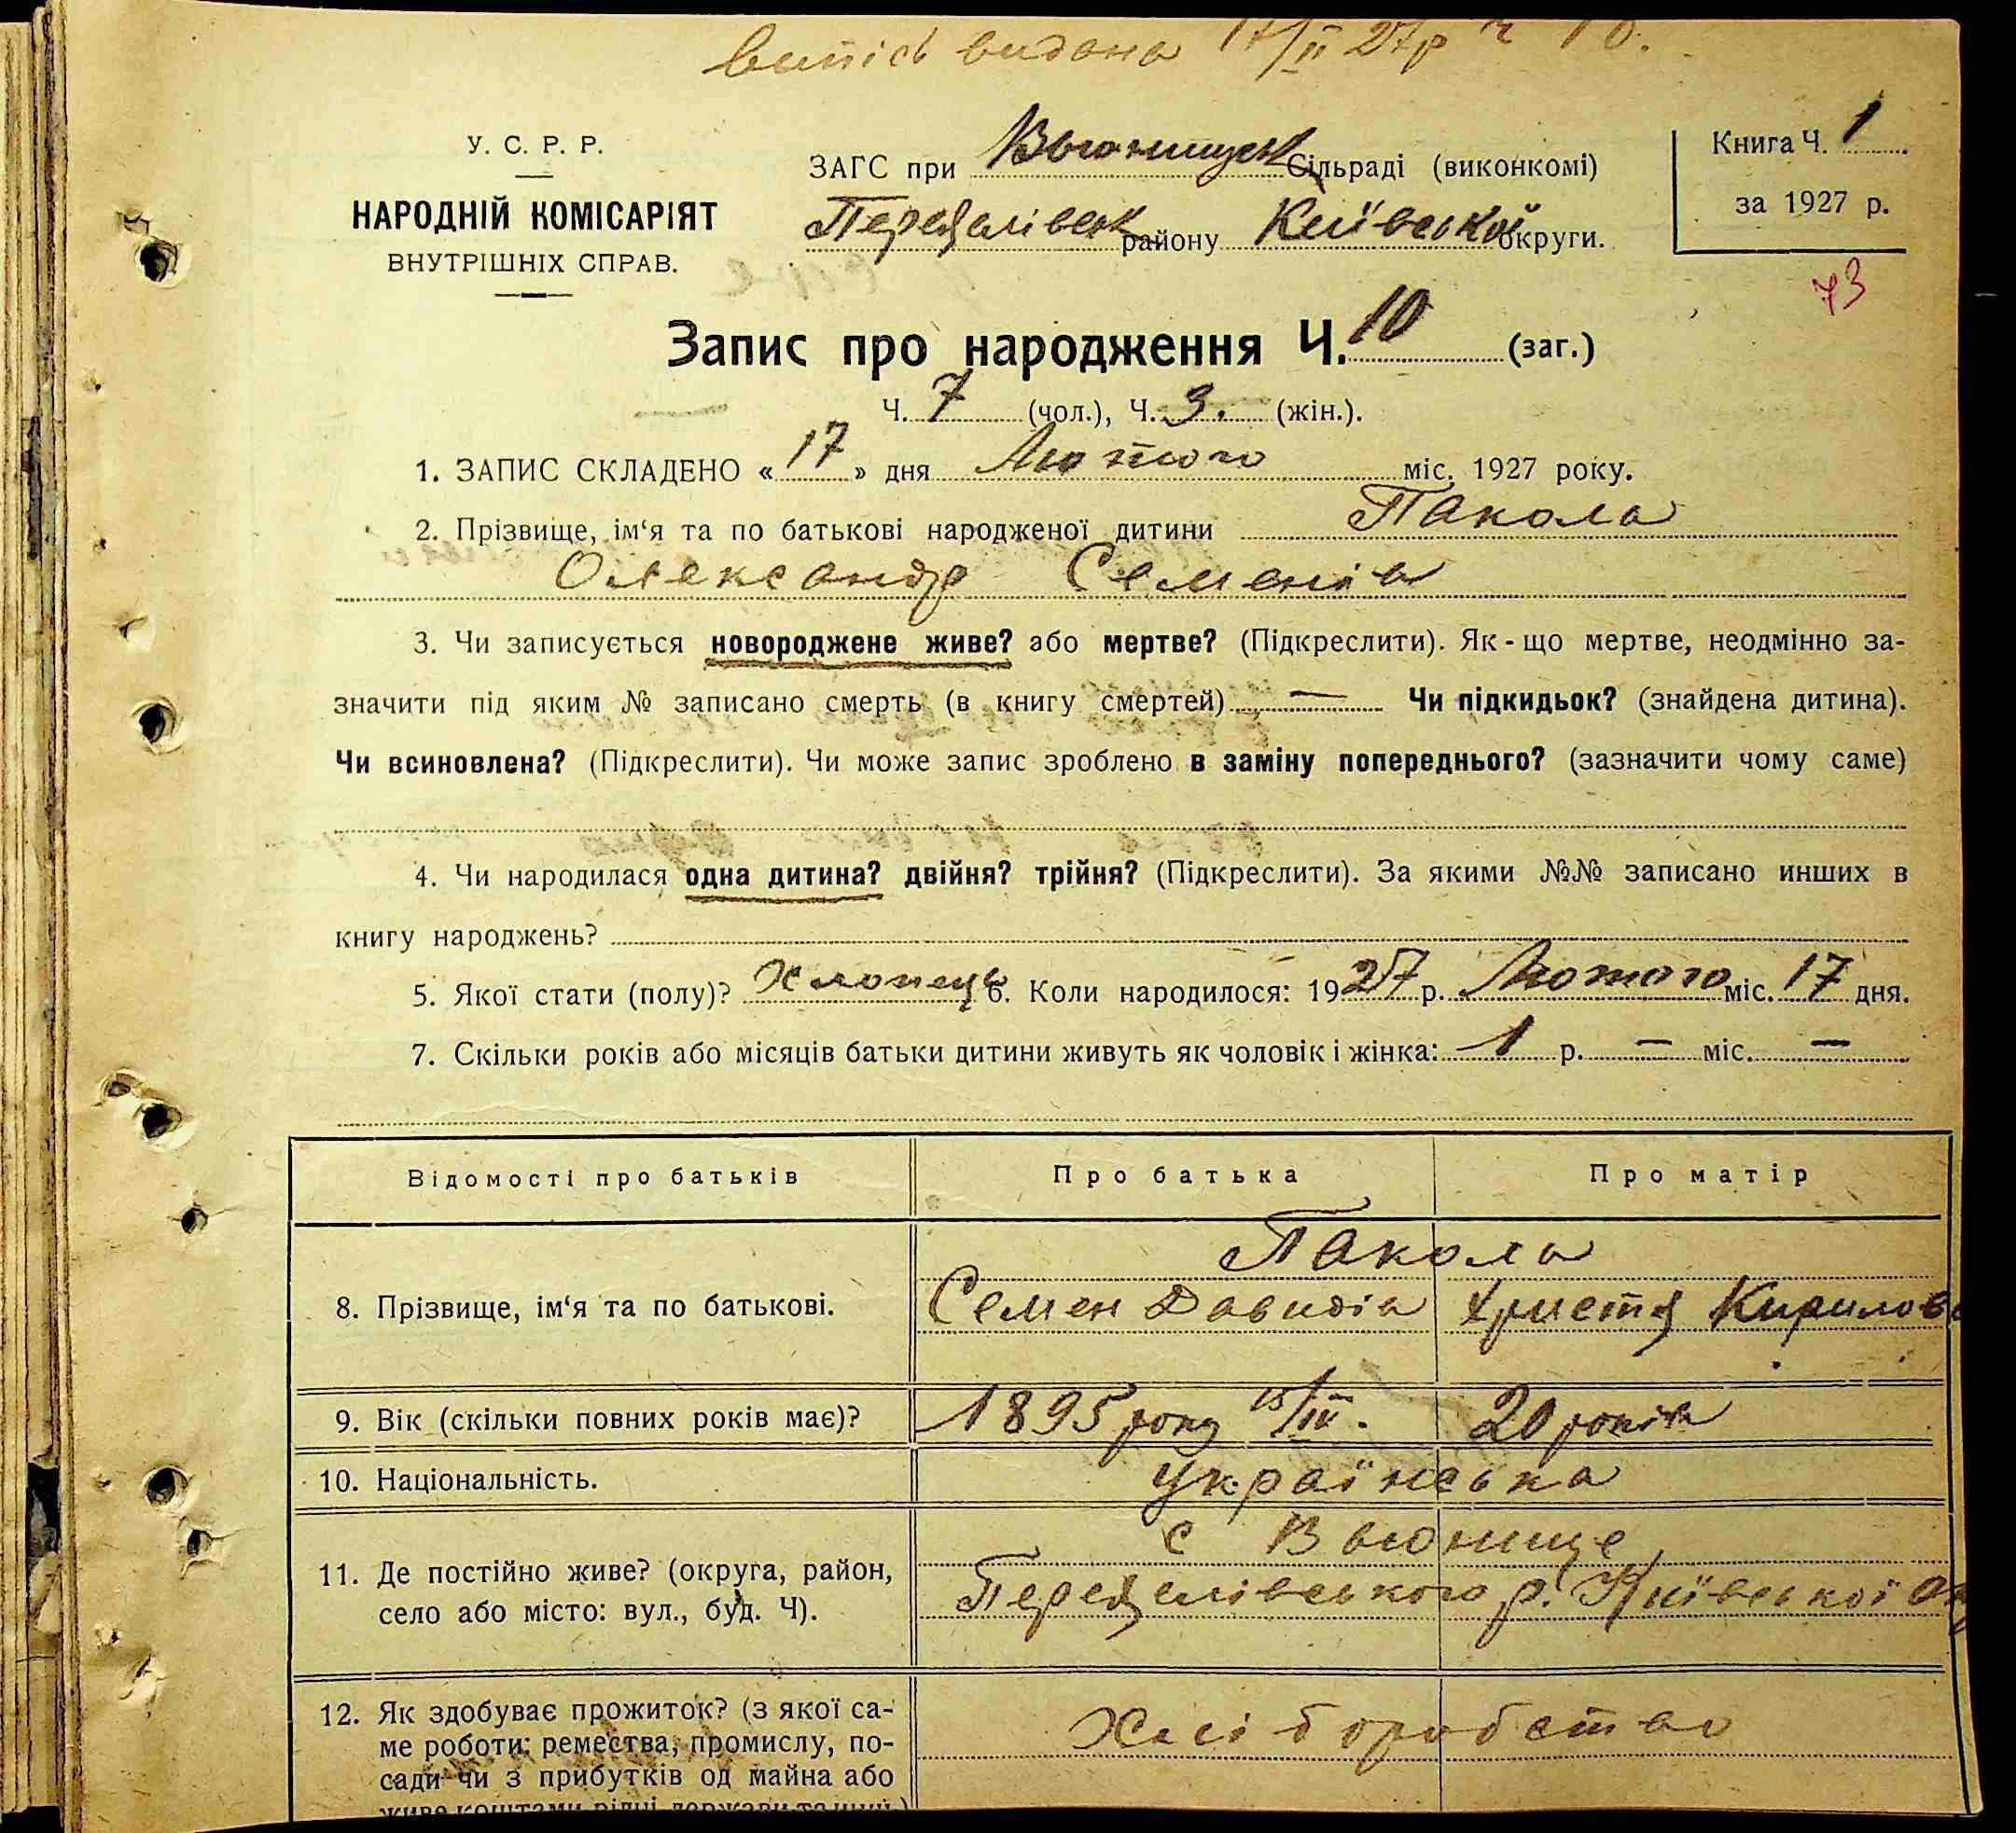 випісь видана 17/II 27р ч 10.
У. С. Р. Р.
НАРОДНІЙ КОМІСАРІЯТ
ВНУТРІШНІХ СПРАВ.
ЗАГС при Вьюнищск Сільраді (виконкомі)
Переяслівськ району Київської округи.
Книга Ч. 1
за 1927 р.
73
Запис про народження Ч. 10 (заг.)
Ч. 7 (чол.), Ч. 3. (жін.).
1. ЗАПИС СКЛАДЕНО « 17 » дня Лютого міс. 1927 року.
2. Прізвище, ім‘я та по батькові народженої дитини Пакола
Олександр Семенів
3. Чи записується новороджене живе? або мертве? (Підкреслити). Як-що мертве, неодмінно за-
значити під яким № записано смерть (в книгу смертей) — Чи підкидьок? (знайдена дитина).
Чи всиновлена? (Підкреслити). Чи може запис зроблено в заміну попереднього? (зазначити чому саме)
4. Чи народилася одна дитина? двійня? трійня? (Підкреслити). За якими №№ записано инших в
книгу народжень?
5. Якої стати (полу)? Хлопець 6. Коли народилося: 1927 р. Лютого міс. 17 дня.
7. Скільки років або місяців батьки дитини живуть як чоловік і жінка: 1 р. — міс. —
Відомості про батьків Про батька Про матір
Пакола
8. Прізвище, ім‘я та по батькові. Семен Давидів Христя Кирилов
9. Вік (скільки повних років має)? 1895 року 15/IV. 20 років
10. Національність. Українська
с Вьюнище
11. Де постійно живе? (округа, район,
Переяслівського р. Київської ок
село або місто: вул., буд. Ч).
12. Як здобуває прожиток? (з якої са-
Хліборобство
ме роботи: ремества, промислу, по-
сади чи з прибутків од майна або
живе коштами рідні, держави та инш.)